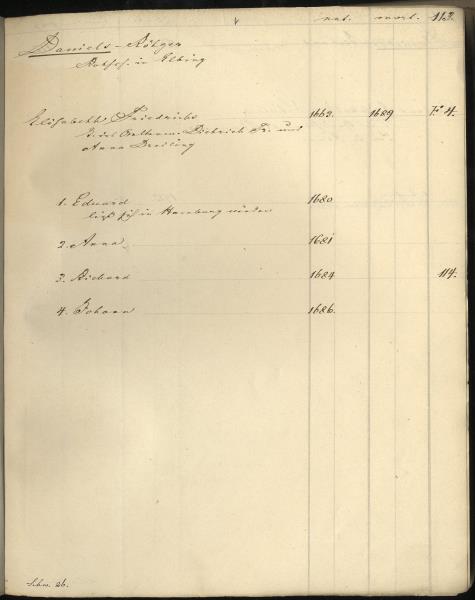 nat. mort. 113.
Daniels - Rötger
Rathsh. in Elbing
Elisabeth Friedrichs 1662. 1689 F. 4.
T. des Dietrich Fr. und
Anna Dreiling
1. Eduard 1680
ließ sich in Hamburg nieder
2. Anna 1681
3. Richard 1684 114.
4. Johann 1686.
Schw. 26.